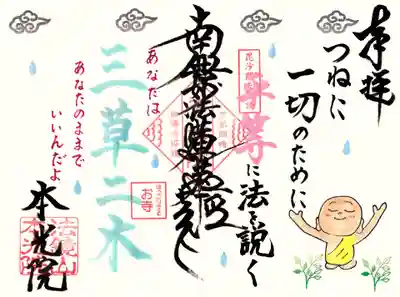 奉拝
つねに
一切のために
平等に法を説く
南無妙法蓮華経
あなたは
お寺
三草二木
あなたのままで
いいんだよ
本光院